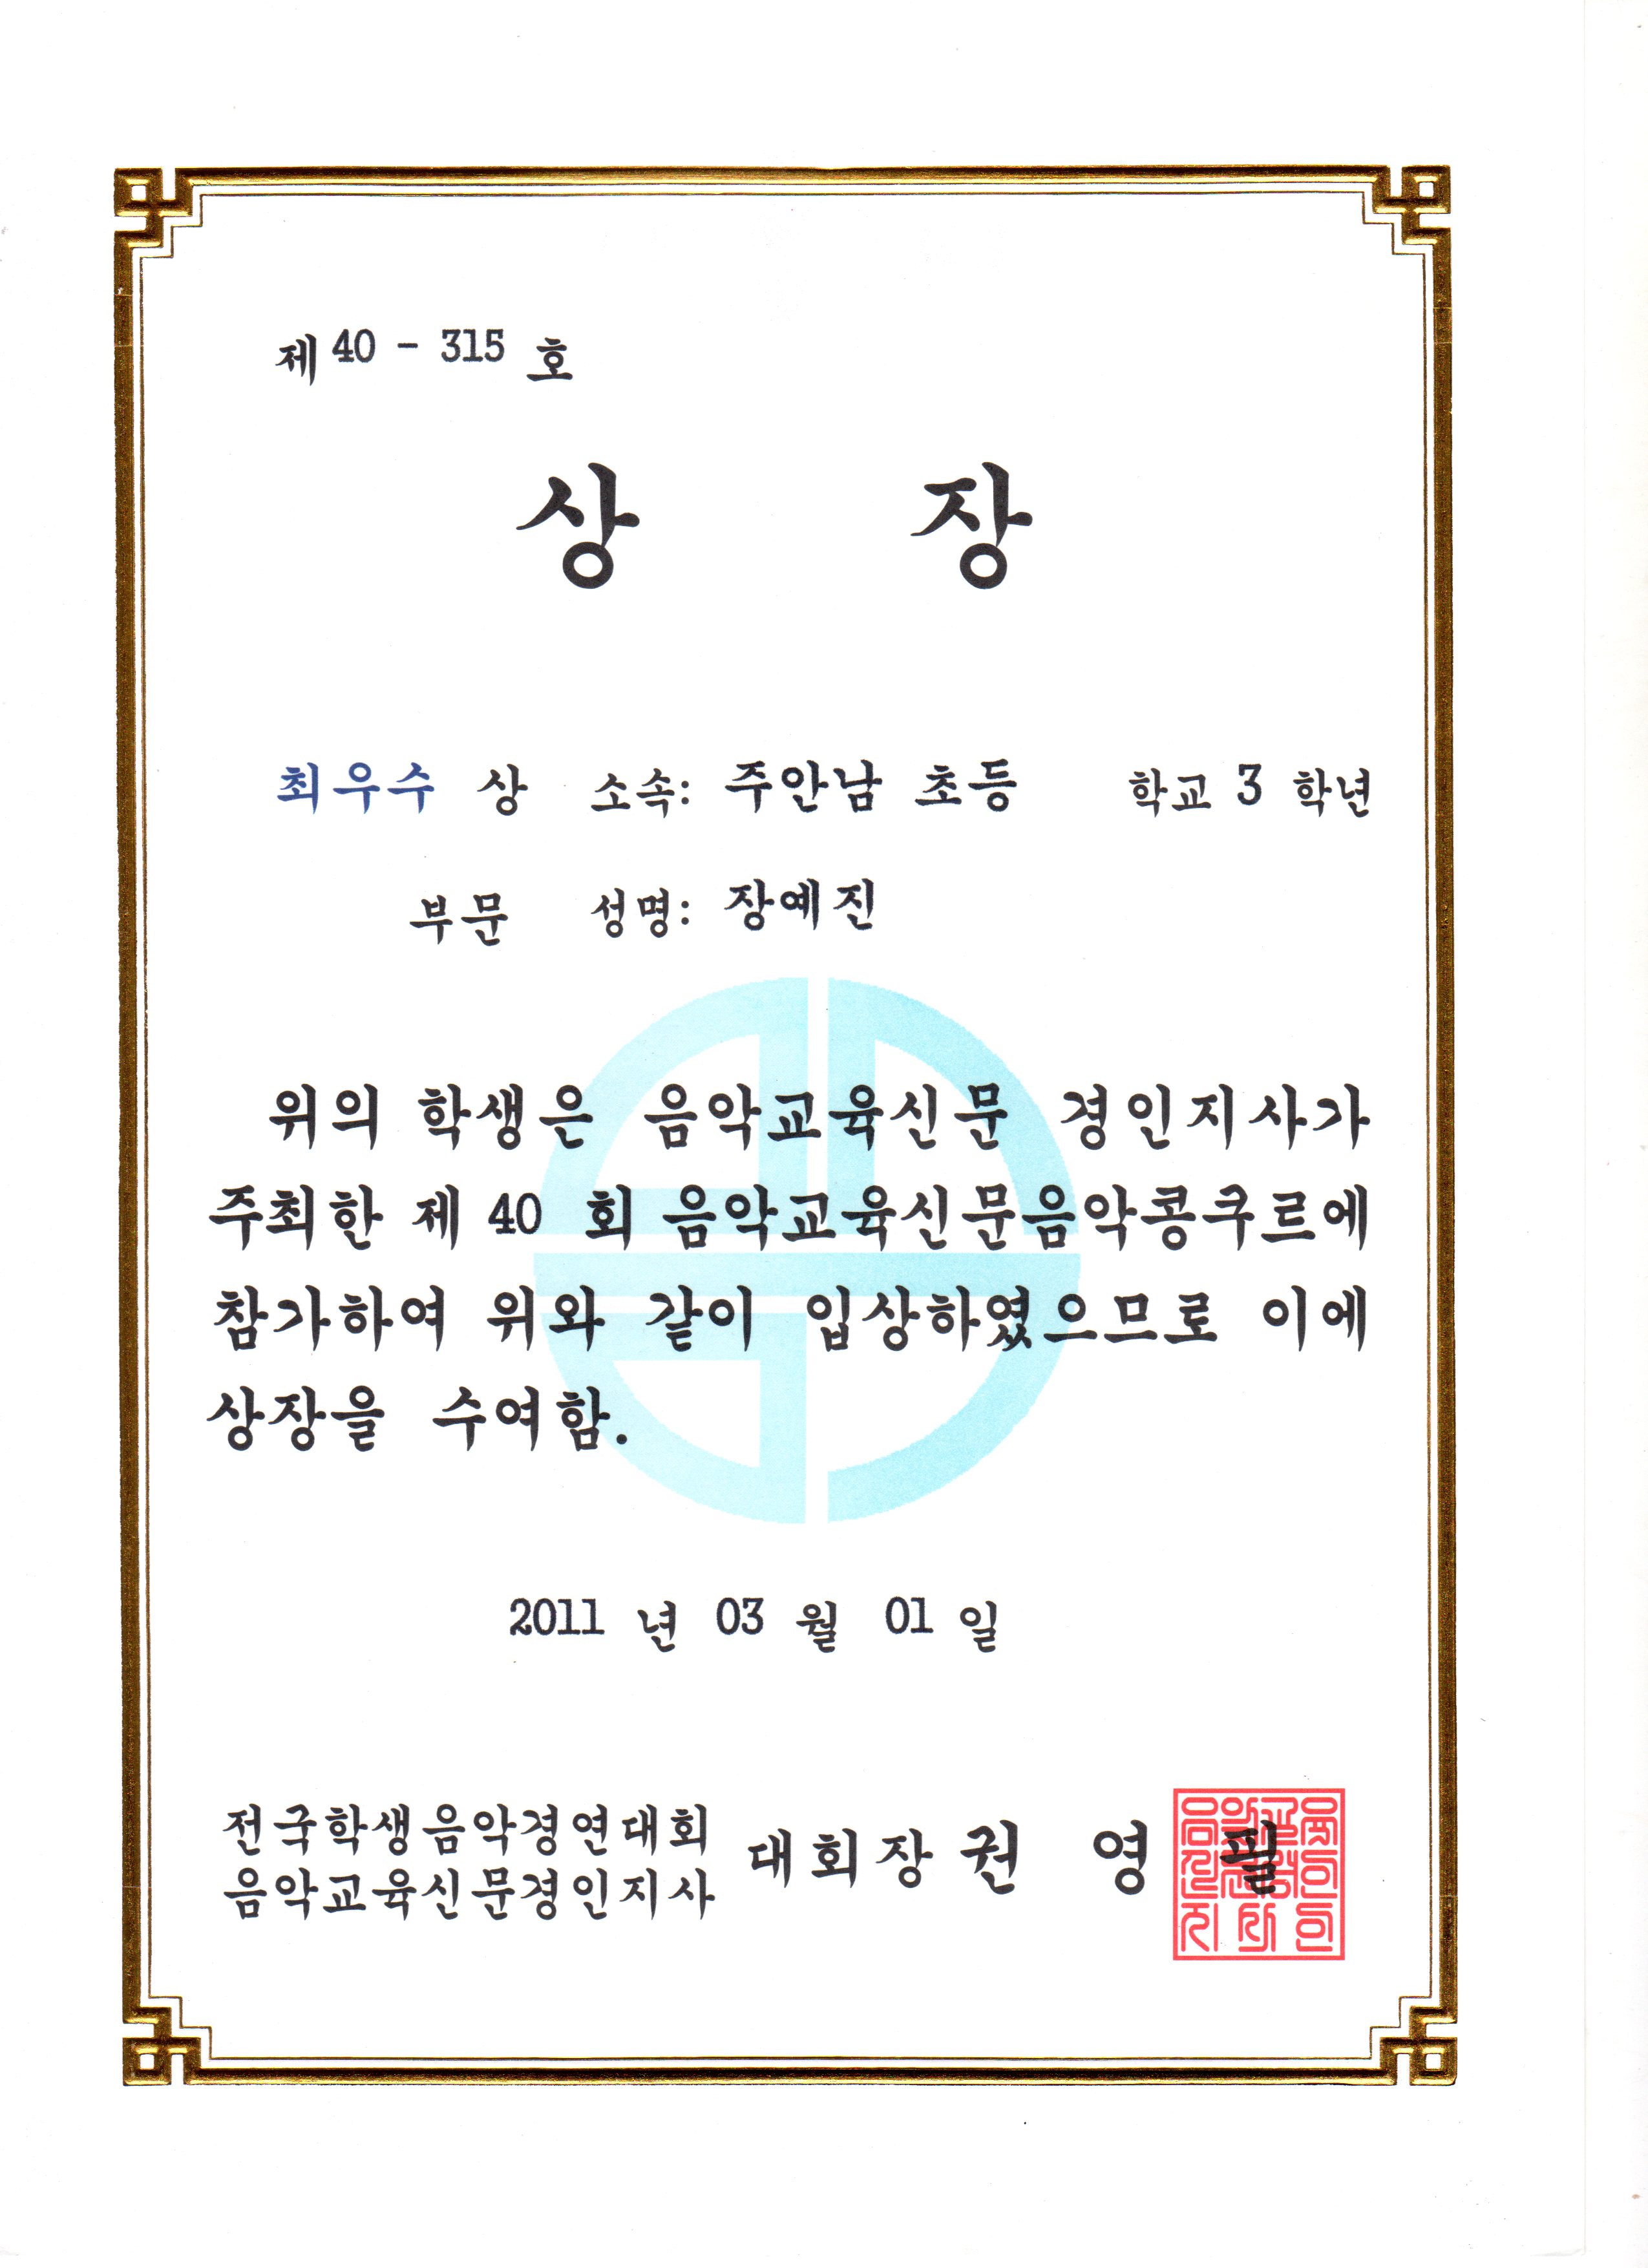 제 40 - 315 호
상 장
최우수 상 소속: 주안남 초등 학교 3 학년
부문 성명: 장예진
위의 학생은 음악교육신문 경인지사가
주최한 제 40 회 음악교육신문음악콩쿠르에
참가하여 위와 같이 입상하였으므로 이에
상장을 수여함.
2011 년 03 월 01 일
전국학생음악경연대회
음악교육신문경인지사
대회장 권 영 필